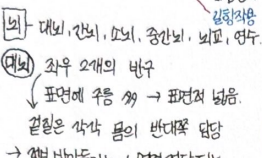 길항작용
뇌 - 대뇌, 간뇌, 소뇌, 중간뇌, 뇌교, 연수.
대뇌 좌우 2개의 반구
표면에 주름 많 → 표면적 넓음.
겉질은 각각 몸의 반대쪽 담당